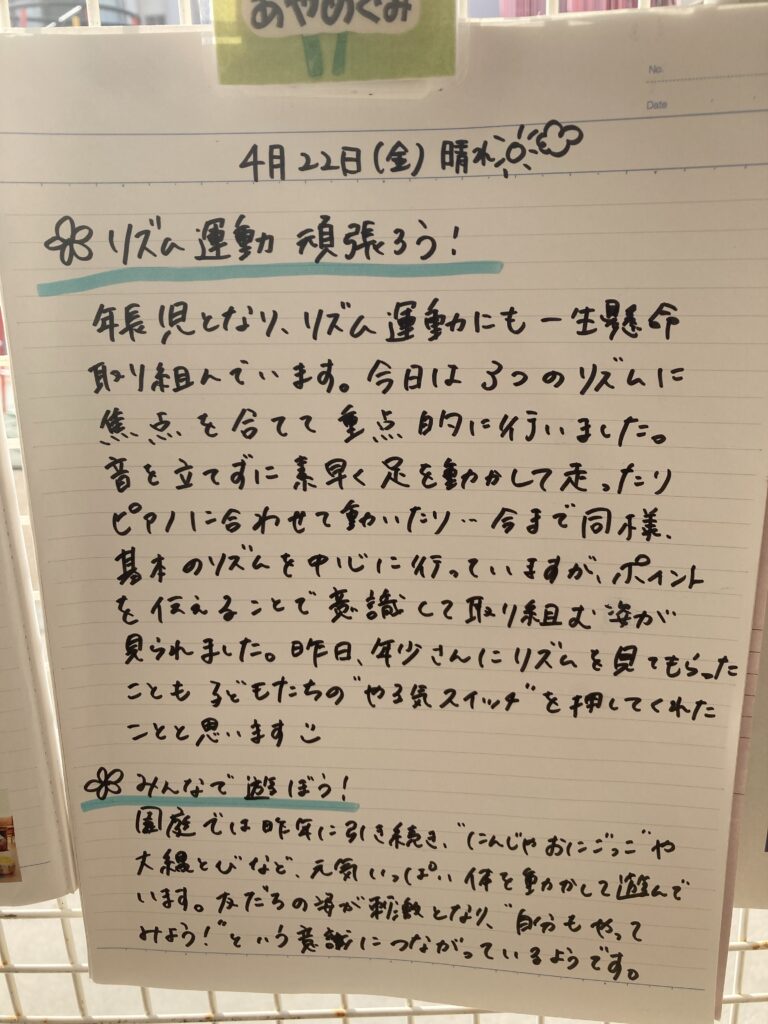 あやめぐみ
No.
Date
4月22日(金) 晴れ
リズム運動 頑張ろう!
年長児となり、リズム運動にも一生懸命
取り組んでいます。今日は3つのリズムに
焦点を合てて重点的に行いました。
音を立てずに素早く足を動かして走ったり
ピアノに合わせて動いたり…今まで同様、
基本のリズムを中心に行っていますが、ポイント
を伝えることで意識して取り組む姿が
見られました。昨日、年少さんにリズムを見てもらった
ことも子どもたちの“やる気スイッチ”を押してくれた
ことと思います
みんなで遊ぼう!
園庭では昨年に引き続き、“にんじゃおにごっこ”や
大縄とびなど、元気いっぱい体を動かして遊んで
います。友だちの姿が刺激となり、“自分もやって
みよう!”という意識につながっているようです。